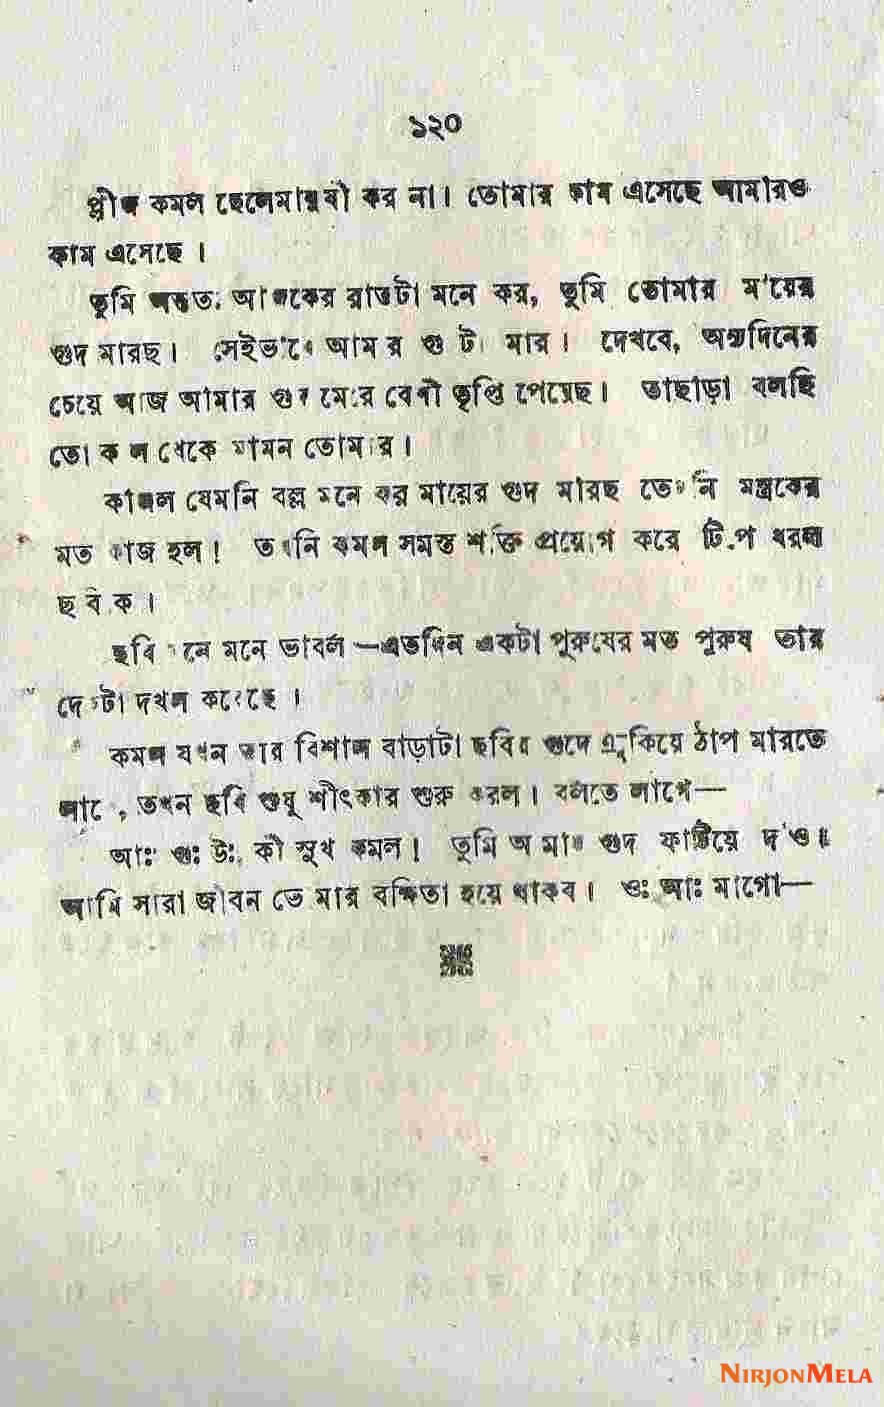 ১২০
প্লীজ কমল ছেলেমানুষী কর না। তোমার কাম এসেছে আমারও
কাম এসেছে।
তুমি অন্তত: আজকের রাতটা মনে কর, তুমি তোমার মায়ের
গুদ মারছ। সেইভাবে আমার গুদটা মার। দেখবে, অন্যদিনের
চেয়ে আজ আমার গুদ মেরে বেশী তৃপ্তি পেয়েছ। তাছাড়া বলছি
তো কাল থেকে তোমার।
যেমনি বলল মনে কর মায়ের গুদ মারছ তেমনি মন্ত্রকের
মত কাজ হল! তখনি কমল সমস্ত শক্তি প্রয়োগ করে টিপে ধরল
ছবিকে।
ছবি মনে মনে ভাবল—এতদিন একটা পুরুষের মত পুরুষ তার
দেহটা দখল করেছে।
কমল যখন তার বিশাল বাড়াটা ছবির গুদে ঢুকিয়ে ঠাপ মারতে
লাগে, তখন ছবি শুধু শীৎকার শুরু করল। বলতে লাগে—
আঃ ওঃ উঃ কী সুখ কমল! তুমি আমার গুদ ফাটিয়ে দাও।
আমি সারা জীবন তোমার রক্ষিতা হয়ে থাকব। ওঃ আঃ মাগো—
NIRJONMELA